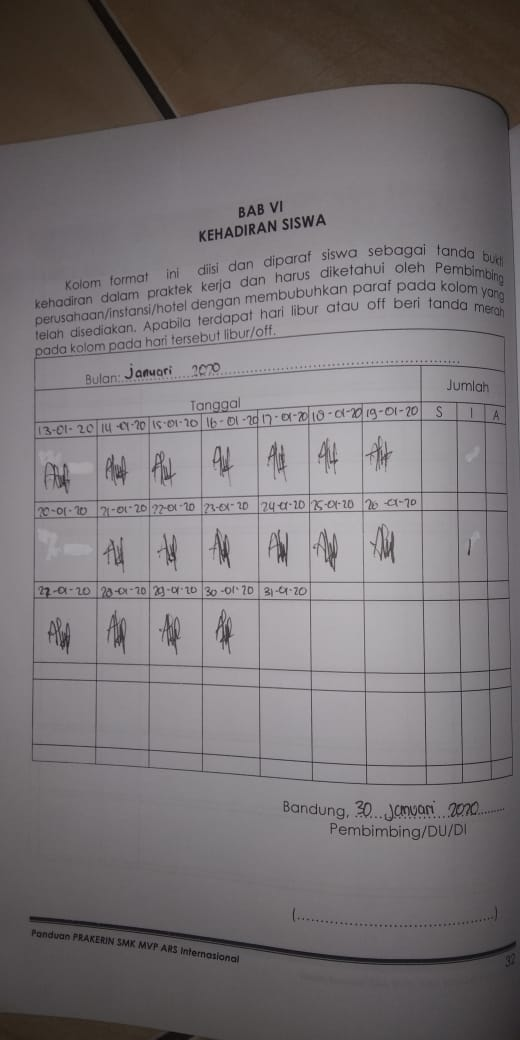 BAB VI
KEHADIRAN SISWA
Kolom format ini diisi dan diparaf siswa sebagai tanda bukti
kehadiran dalam praktek kerja dan harus diketahui oleh Pembimbing
perusahaan/instansi/hotel dengan membubuhkan paraf pada kolom yang
telah disediakan. Apabila terdapat hari libur atau off beri tanda merah
pada kolom pada hari tersebut libur/off.
Bulan: Januari 2020
Tanggal Jumlah
13-01-20 14-01-20 15-01-20 16-01-20 17-01-20 18-01-20 19-01-20 S I A
20-01-20 21-01-20 22-01-20 23-01-20 24-01-20 25-01-20 26-01-20
1
27-01-20 28-01-20 29-01-20 30-01-20 31-01-20
Bandung, 30 Januari 2020
Pembimbing/DU/DI
(....................................)
Panduan PRAKERIN SMK MVP ARS Internasional
32